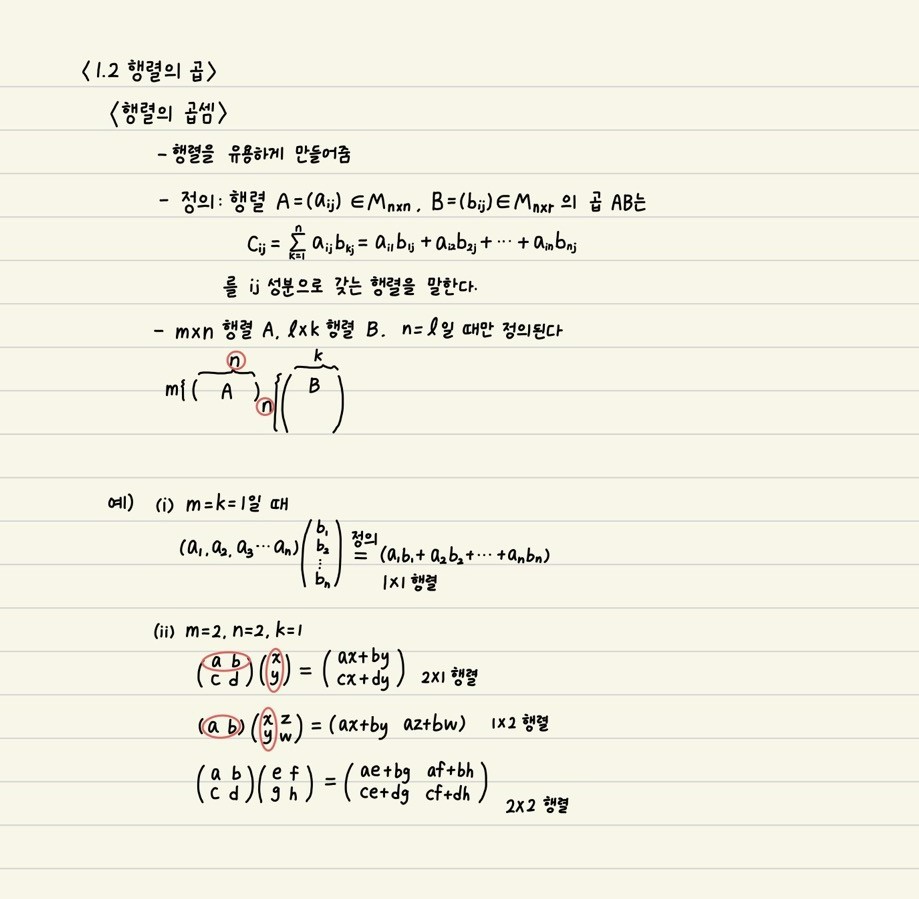 〈1.2 행렬의 곱〉
〈행렬의 곱셈〉
- 행렬을 유용하게 만들어줌
- 정의: 행렬 A=(aij) ∈Mnxn, B=(bij)∈Mnxr 의 곱 AB는
Cij = n∑k=1 aijbkj = ai1b1j + ai2b2j + ⋯ + ainbnj
를 ij 성분으로 갖는 행렬을 말한다.
- m×n 행렬 A, l×k 행렬 B. n=l일 때만 정의된다
n k
m{( A ) n{( B )
예) (i) m=k=1일 때
(a1, a2, a3 ⋯ an)(b1 b2 ⋮ bn) 정의 = (a1b1+ a2b2+ ⋯ +anbn)
1×1 행렬
(ii) m=2, n=2, k=1
(a b c d)(x y) = (ax+by cx+dy) 2×1 행렬
(a b)(x z y w) = (ax+by az+bw) 1×2 행렬
(a b c d)(e f g h) = (ae+bg af+bh ce+dg cf+dh)
2×2 행렬